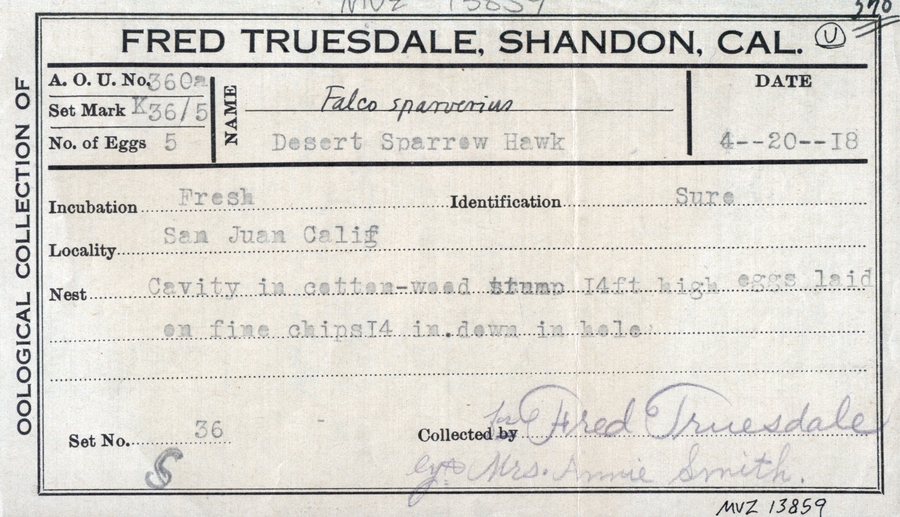 MVZ 13859
370
FRED TRUESDALE, SHANDON, CAL. U
OOLOGICAL COLLECTION OF
A. O. U. No. 360a
Set Mark K36/5
No. of Eggs 5
NAME
Falco sparverius
Desert Sparrow Hawk
DATE
4--20--I8
Incubation Fresh Identification Sure
Locality San Juan Calif
Nest Cavity in cotton-wood stump I4ft high eggs laid
on fine chipsI4 in.down in hole
Set No. 36
Collected by Fred Truesdale
Mrs. Annie Smith.
MVZ 13859